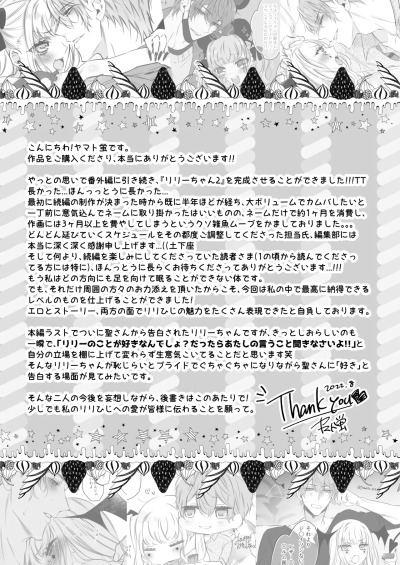 こんにちわ!ヤマト蛍です。
作品をご購入くださり、本当にありがとうございます!!
やっとの思いで番外編に引き続き、『リリーちゃん2』を完成させることができました!!!TT
長かった…ほんっっとうに長かった…
最初に続編の制作が決まった時から既に半年ほどが経ち、大ボリュームでカムバしたいと
一丁前に意気込んでネームに取り掛かったはいいものの、ネームだけで約1ヶ月を消費し、
作画には3ヶ月以上を費やしてしまうというウソ雑魚ムーブをかましておりました。。。
どんどん延びていくスケジュールをその都度ご調整してくださった担当氏、編集部には
本当に深く深く感謝申し上げます…((土下座
そして何より、続編を楽しみにしてくださっていた読者さま(1の頃から読んでくださっ
てる方には特に)、ほんっっとうに長らくお待ちくださってありがとうございます…!!!
もう私はどの方向にも足を向けて眠ることができない体です。
でも、それだけ周囲の方々のお力添えを頂いたからこそ、今回は私の中で最高に納得できる
レベルのものを仕上げることができました!
エロとストーリー、両方の面でリリひじの魅力をたくさん表現できたと自負しております。
本編ラストでついに聖さんから告白されたリリーちゃんですが、きっとしおらしいのも
一瞬で、「リリーのことが好きなんでしょ?だったらあたしの言うこと聞きなさいよ!!」と
自分の立場を棚に上げて変わらず生意気こいてることだと思います笑
そんなリリーちゃんが恥じらいとプライドでぐちゃぐちゃになりながら聖さんに「好き」と
告白する場面が見てみたいです。
そんな二人の今後を妄想しながら、後書きはこのあたりで!
少しでも私のリリひじへの愛が皆様に伝わることを願って。
2022.8
Thank you
ヤマト蛍